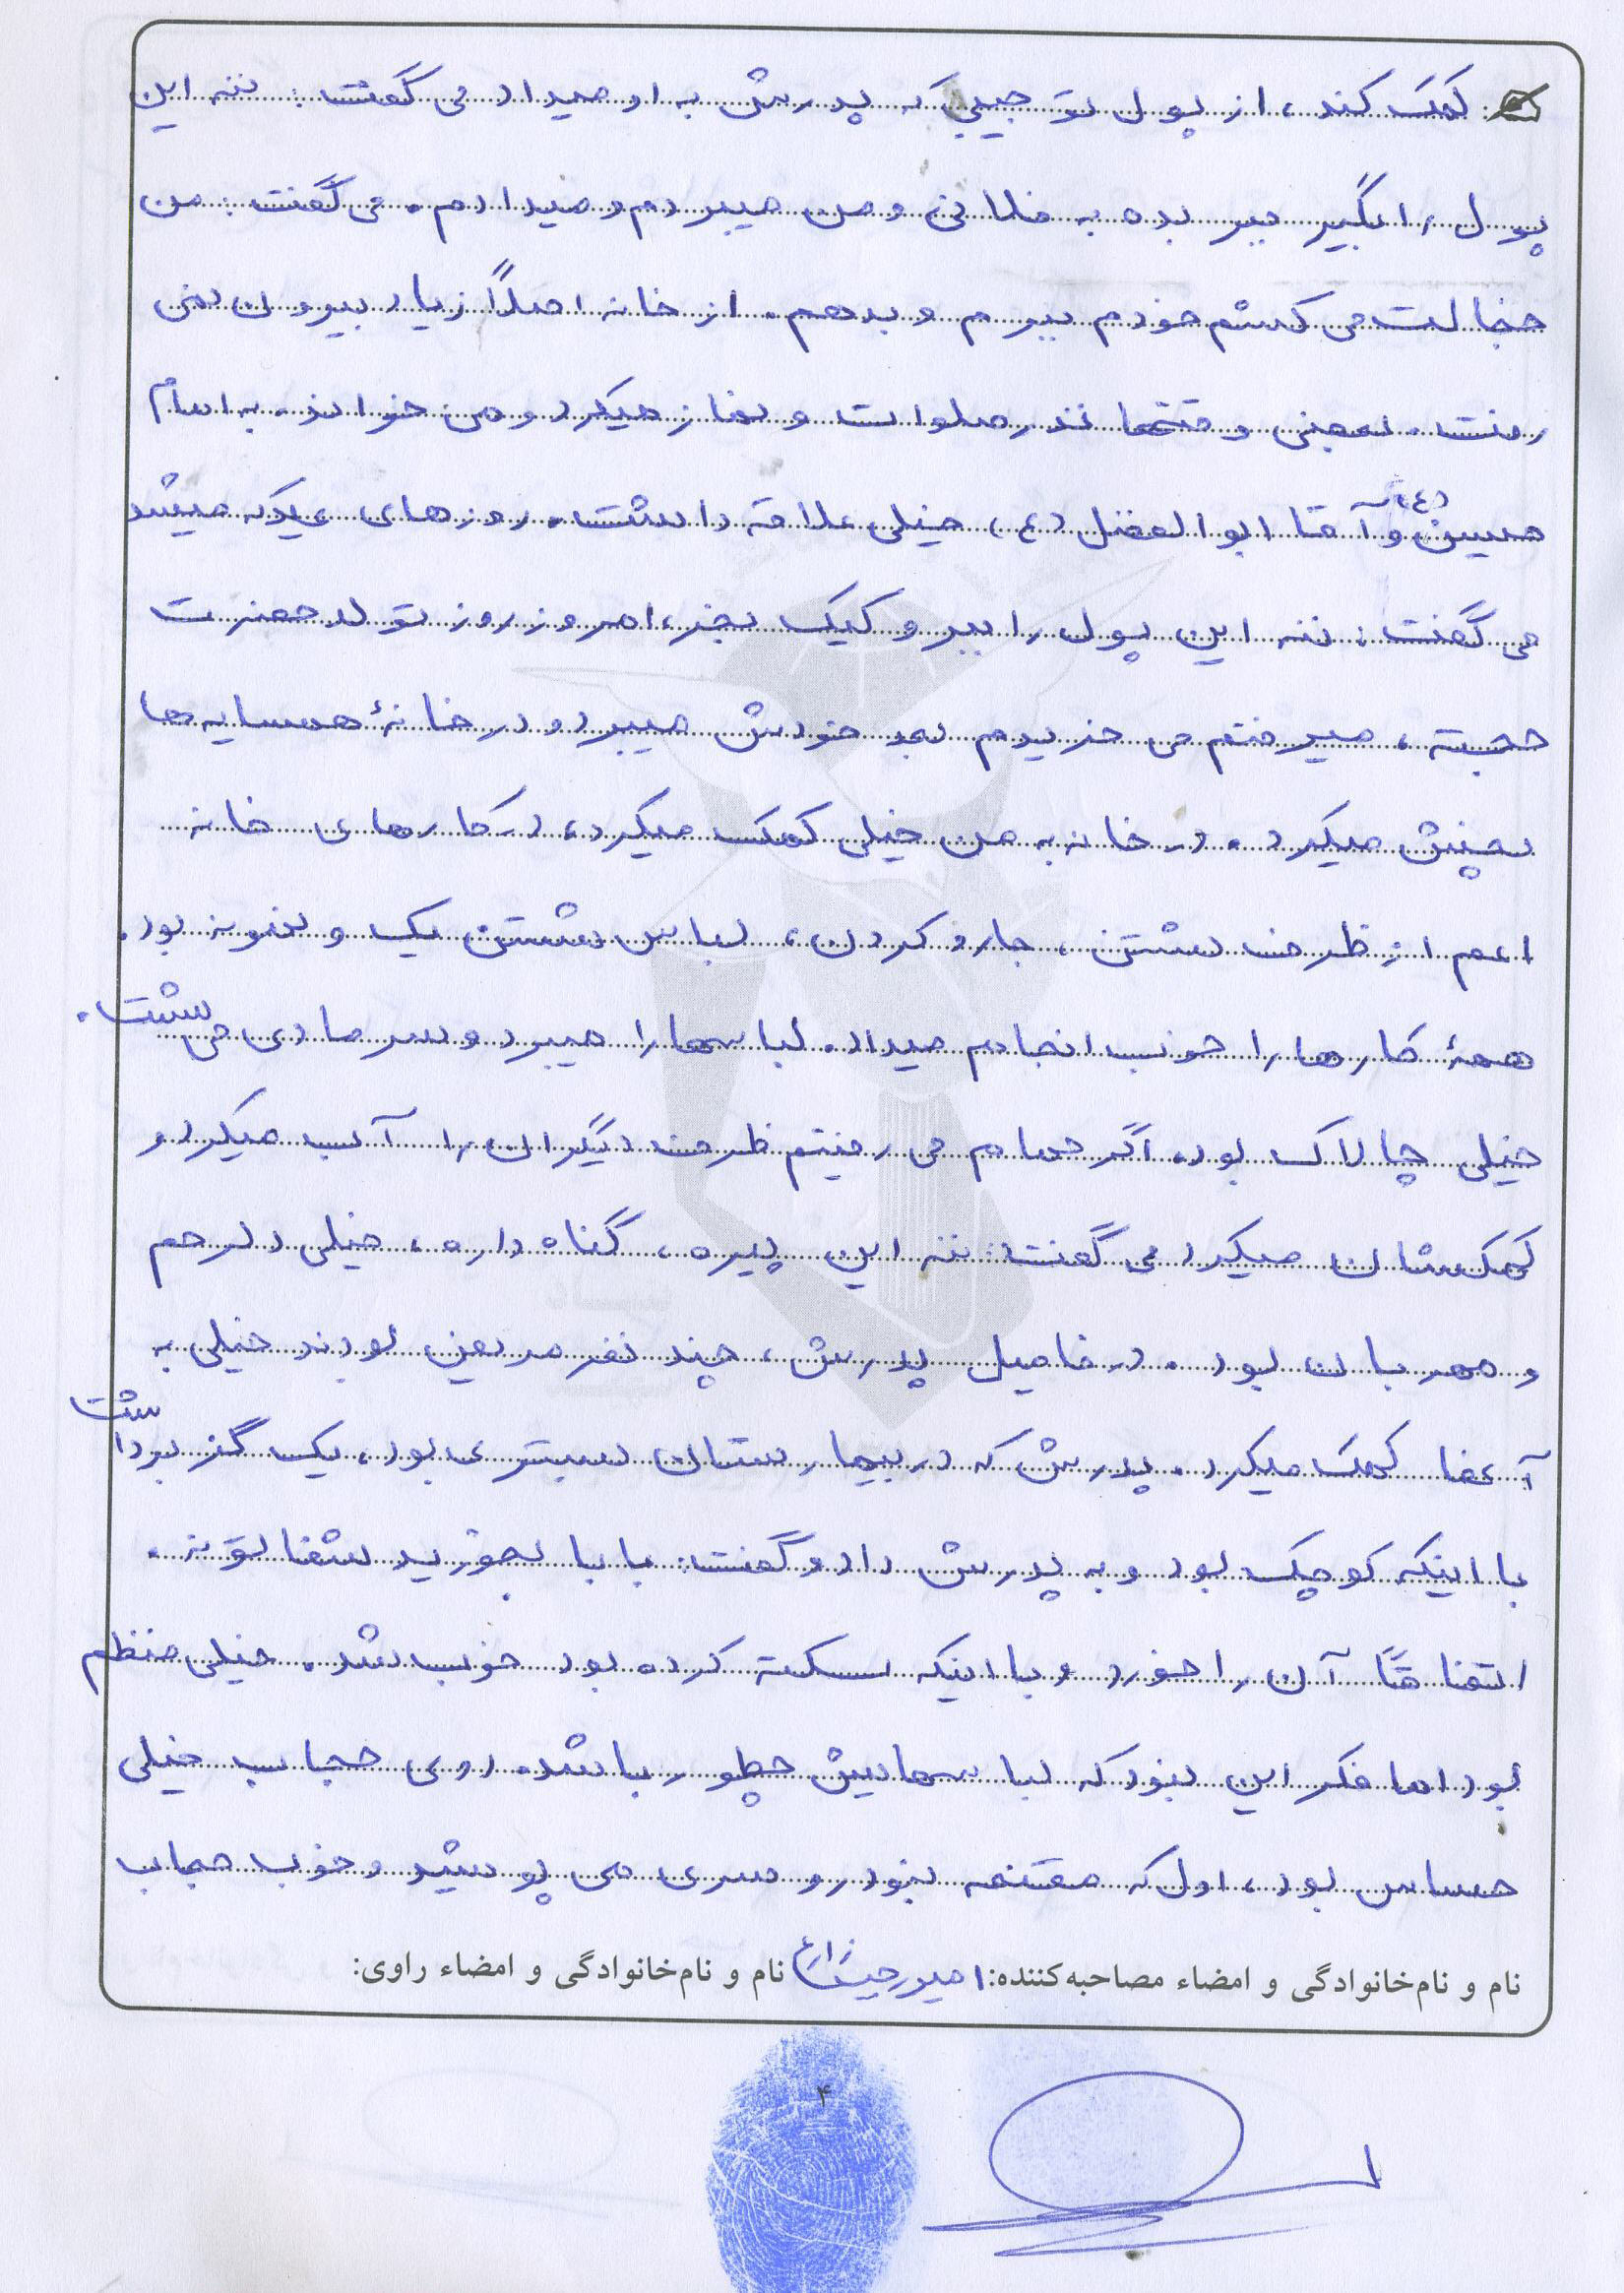 کمک کند، از پول تو جیبی که پدرش به او میداد می گفت: ننه این
پول را بگیر ببر بده به فلانی و من میبردم و میدادم. می گفت: من
خجالت می کشم خودم ببرم و بدهم. از خانه اصلاً زیاد بیرون نمی
رفت. بعضی وقتها نذر صلوات و نماز میکرد و می خواند. به امام
حسین (ع) و آقا ابوالفضل (ع) خیلی علاقه داشت. روزهای عید که میشد
می گفت: ننه این پول را ببر و کیک بخر، امروز روز تولد حضرت
حجته، میرفتم می خریدم بعد خودش میبرد و در خانهٔ همسایه ها
پخش میکرد. در خانه به من خیلی کمک میکرد، در کارهای خانه
اعم از ظرف شستن، جارو کردن، لباس شستن یک و نمونه بود.
همهٔ کارها را خوب انجام میداد. لباسها را میبرد و سر مادی می شست.
خیلی چالاک بود. اگر حمام می رفتیم ظرف دیگران را آب میکرد و
کمک شان میکرد می گفت: ننه این پیره، گناه داره، خیلی دلرحم
و مهربان بود. در فامیل پدرش، چند نفر مریض بودند خیلی به
آنها کمک میکرد. پدرش که در بیمارستان بستری بود، یک گز برداشت
با اینکه کوچک بود و به پدرش داد و گفت: بابا بخورید شفا توشه.
اتفاقاً آن را خورد و با اینکه سکته کرده بود خوب شد. خیلی منظم
بود اما فکر این نبود که لباسهایش چطور باشد. روی حجاب خیلی
حساس بود، اول که مقنعه نبود روسری می پوشید و خوب حجاب
نام و نام‌خانوادگی و امضاء مصاحبه‌کننده: نام و نام‌خانوادگی و امضاء راوی:
۴